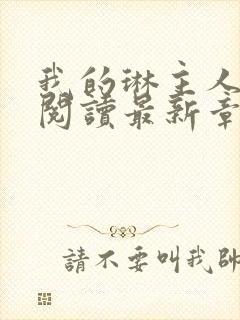 我的琳主人
閱讀最新章
請不要叫我帥